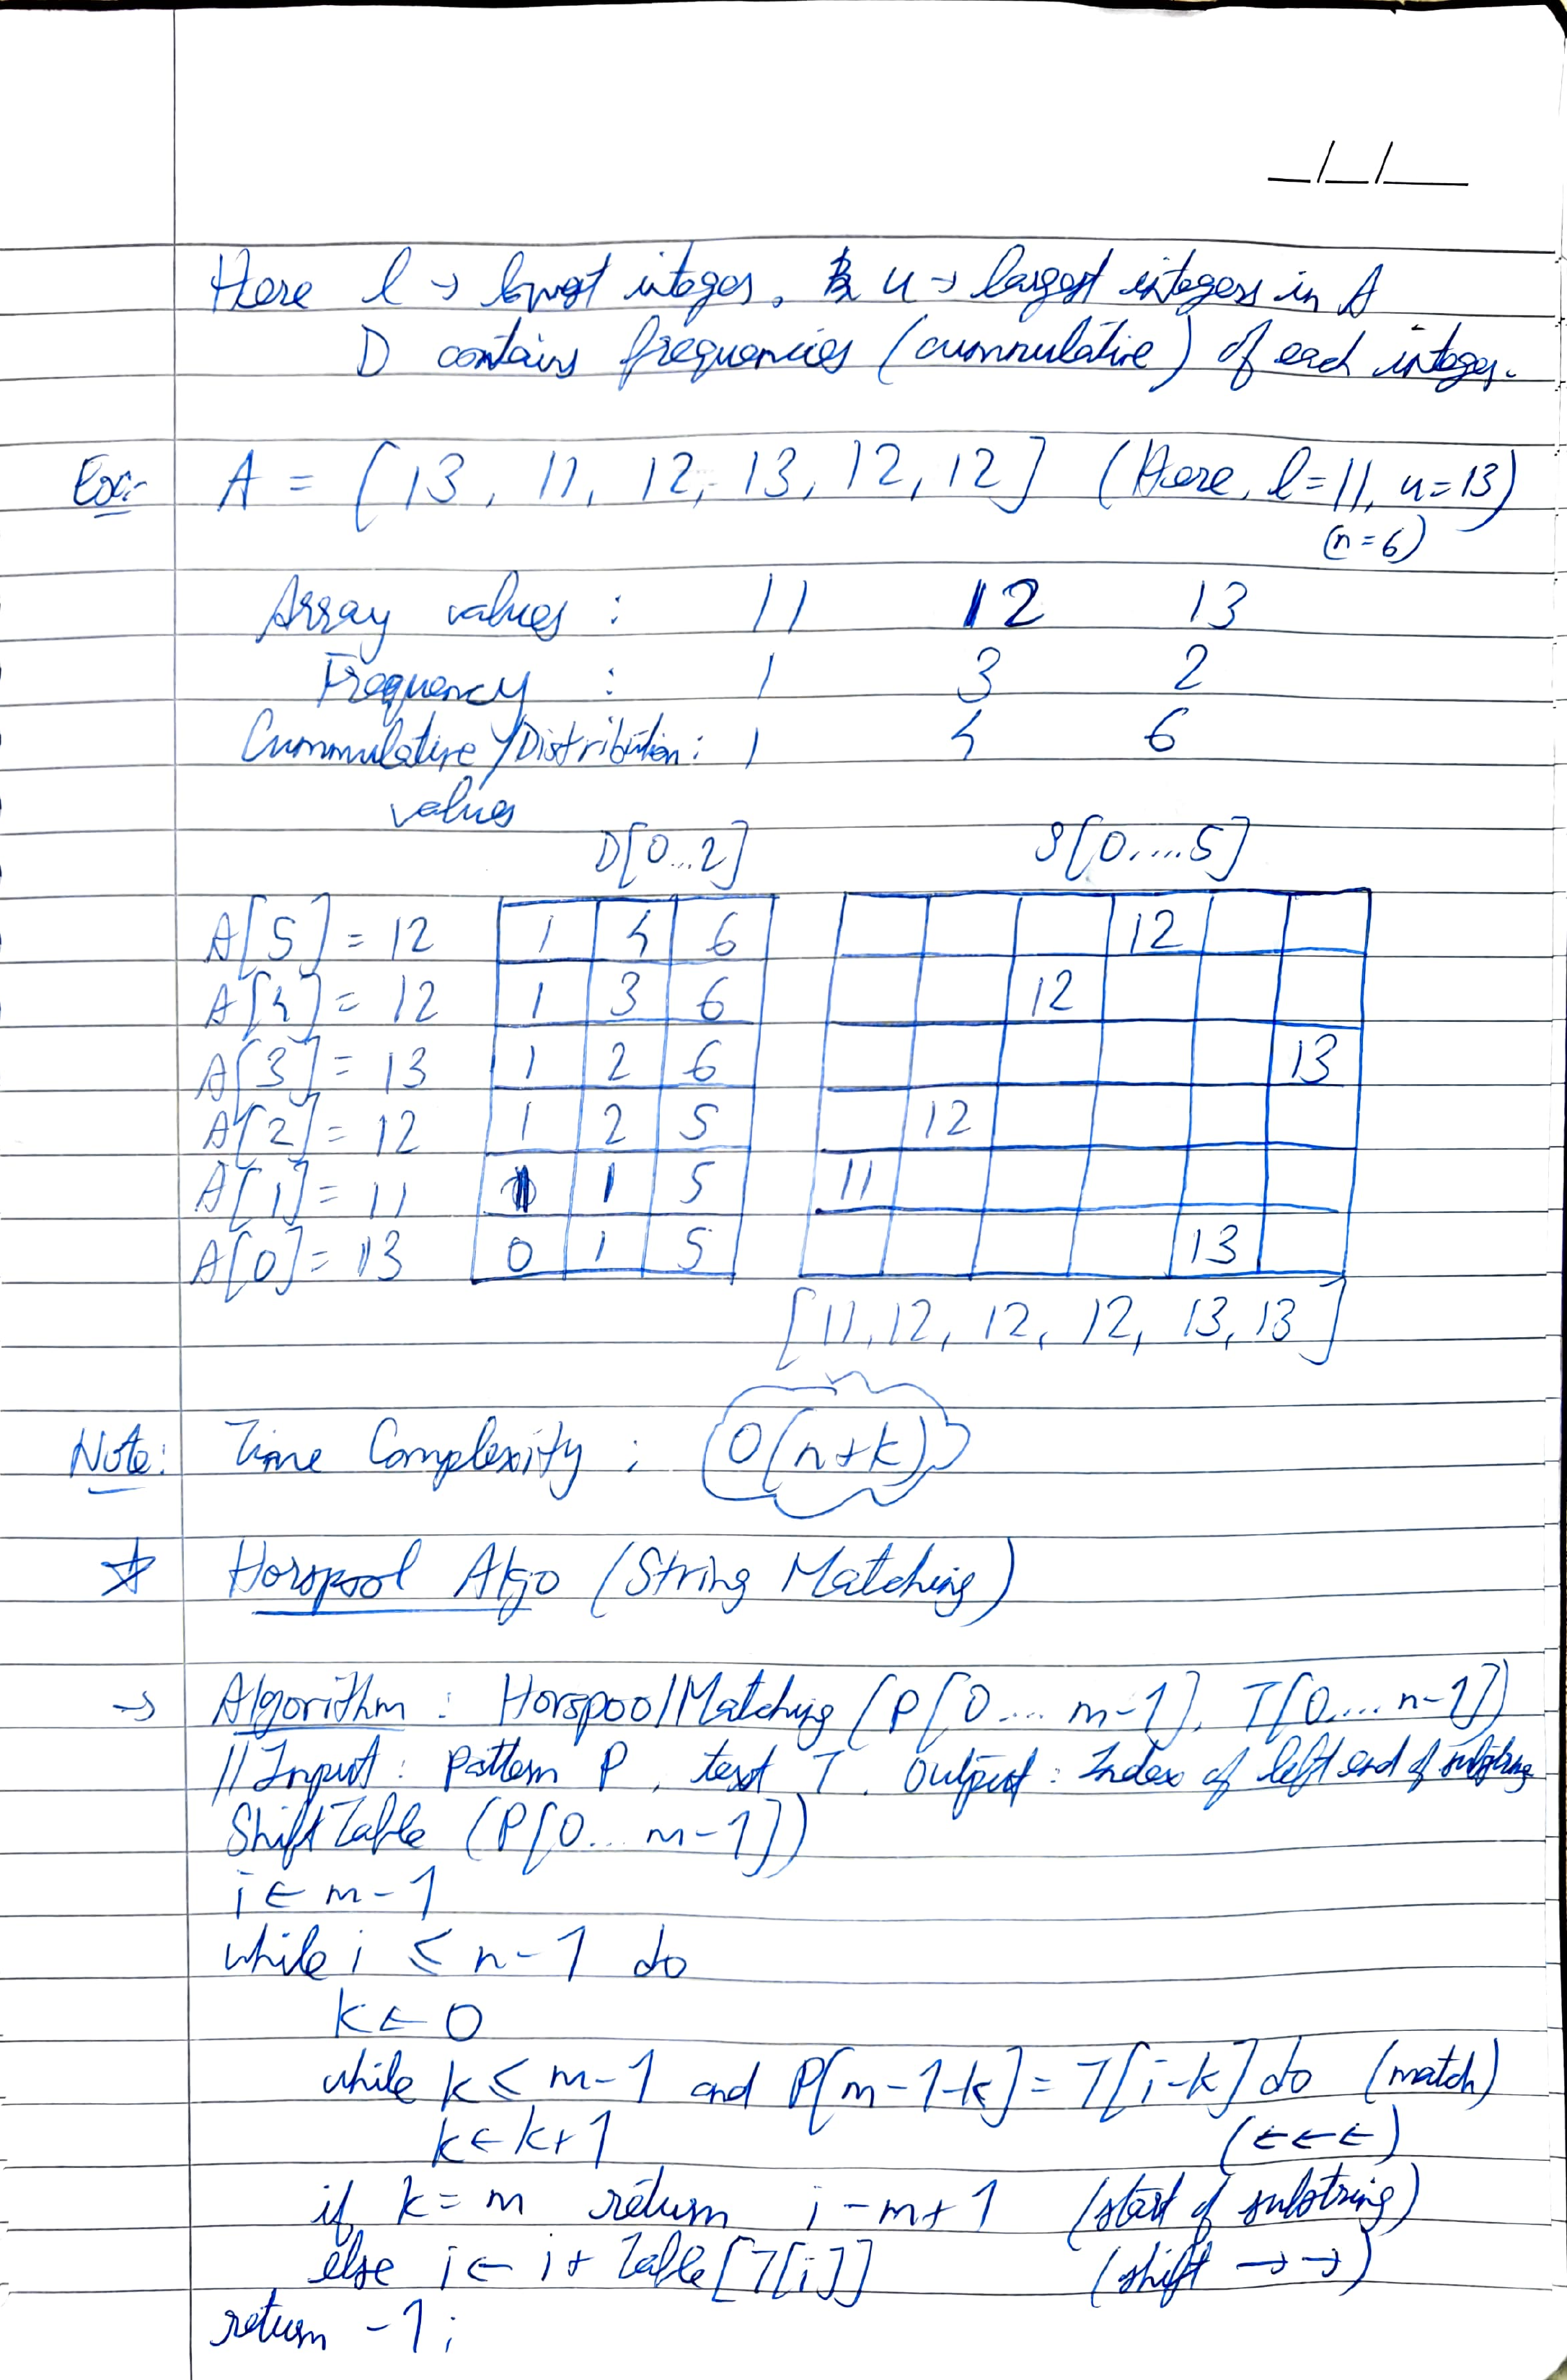 _/_/__
Here l → lowest integer, & u → largest integers in A
D contains frequencies (cummulative) of each integer.
Ex:- A = [13, 11, 12, 13, 12, 12] (Here, l=11, u=13)
(n=6)
Array values : 11 12 13
Frequency : 1 3 2
Cummulative/Distribution : 1 4 6
values
D[0...2] S[0....5]
A[5] = 12 1 4 6 12
A[4] = 12 1 3 6 12
A[3] = 13 1 2 6 13
A[2] = 12 1 2 5 12
A[1] = 11 1 1 5 11
A[0] = 13 0 1 5 13
[11, 12, 12, 12, 13, 13]
Note: Time Complexity : O(n+k)
☆ Horspool Algo (String Matching)
→ Algorithm : HorspoolMatching (P[0.... m-1], T[0.... n-1])
// Input : pattern P, text T. Output : Index of left end of substring
ShiftTable (P[0... m-1])
i ← m-1
while i ≤ n-1 do
k ← 0
while k ≤ m-1 and P[m-1-k] = T[i-k] do (match)
k ← k+1 (← ← ←)
if k = m return i-m+1 (start of substring)
else i ← i + Table[T[i]] (shift → →)
return -1;